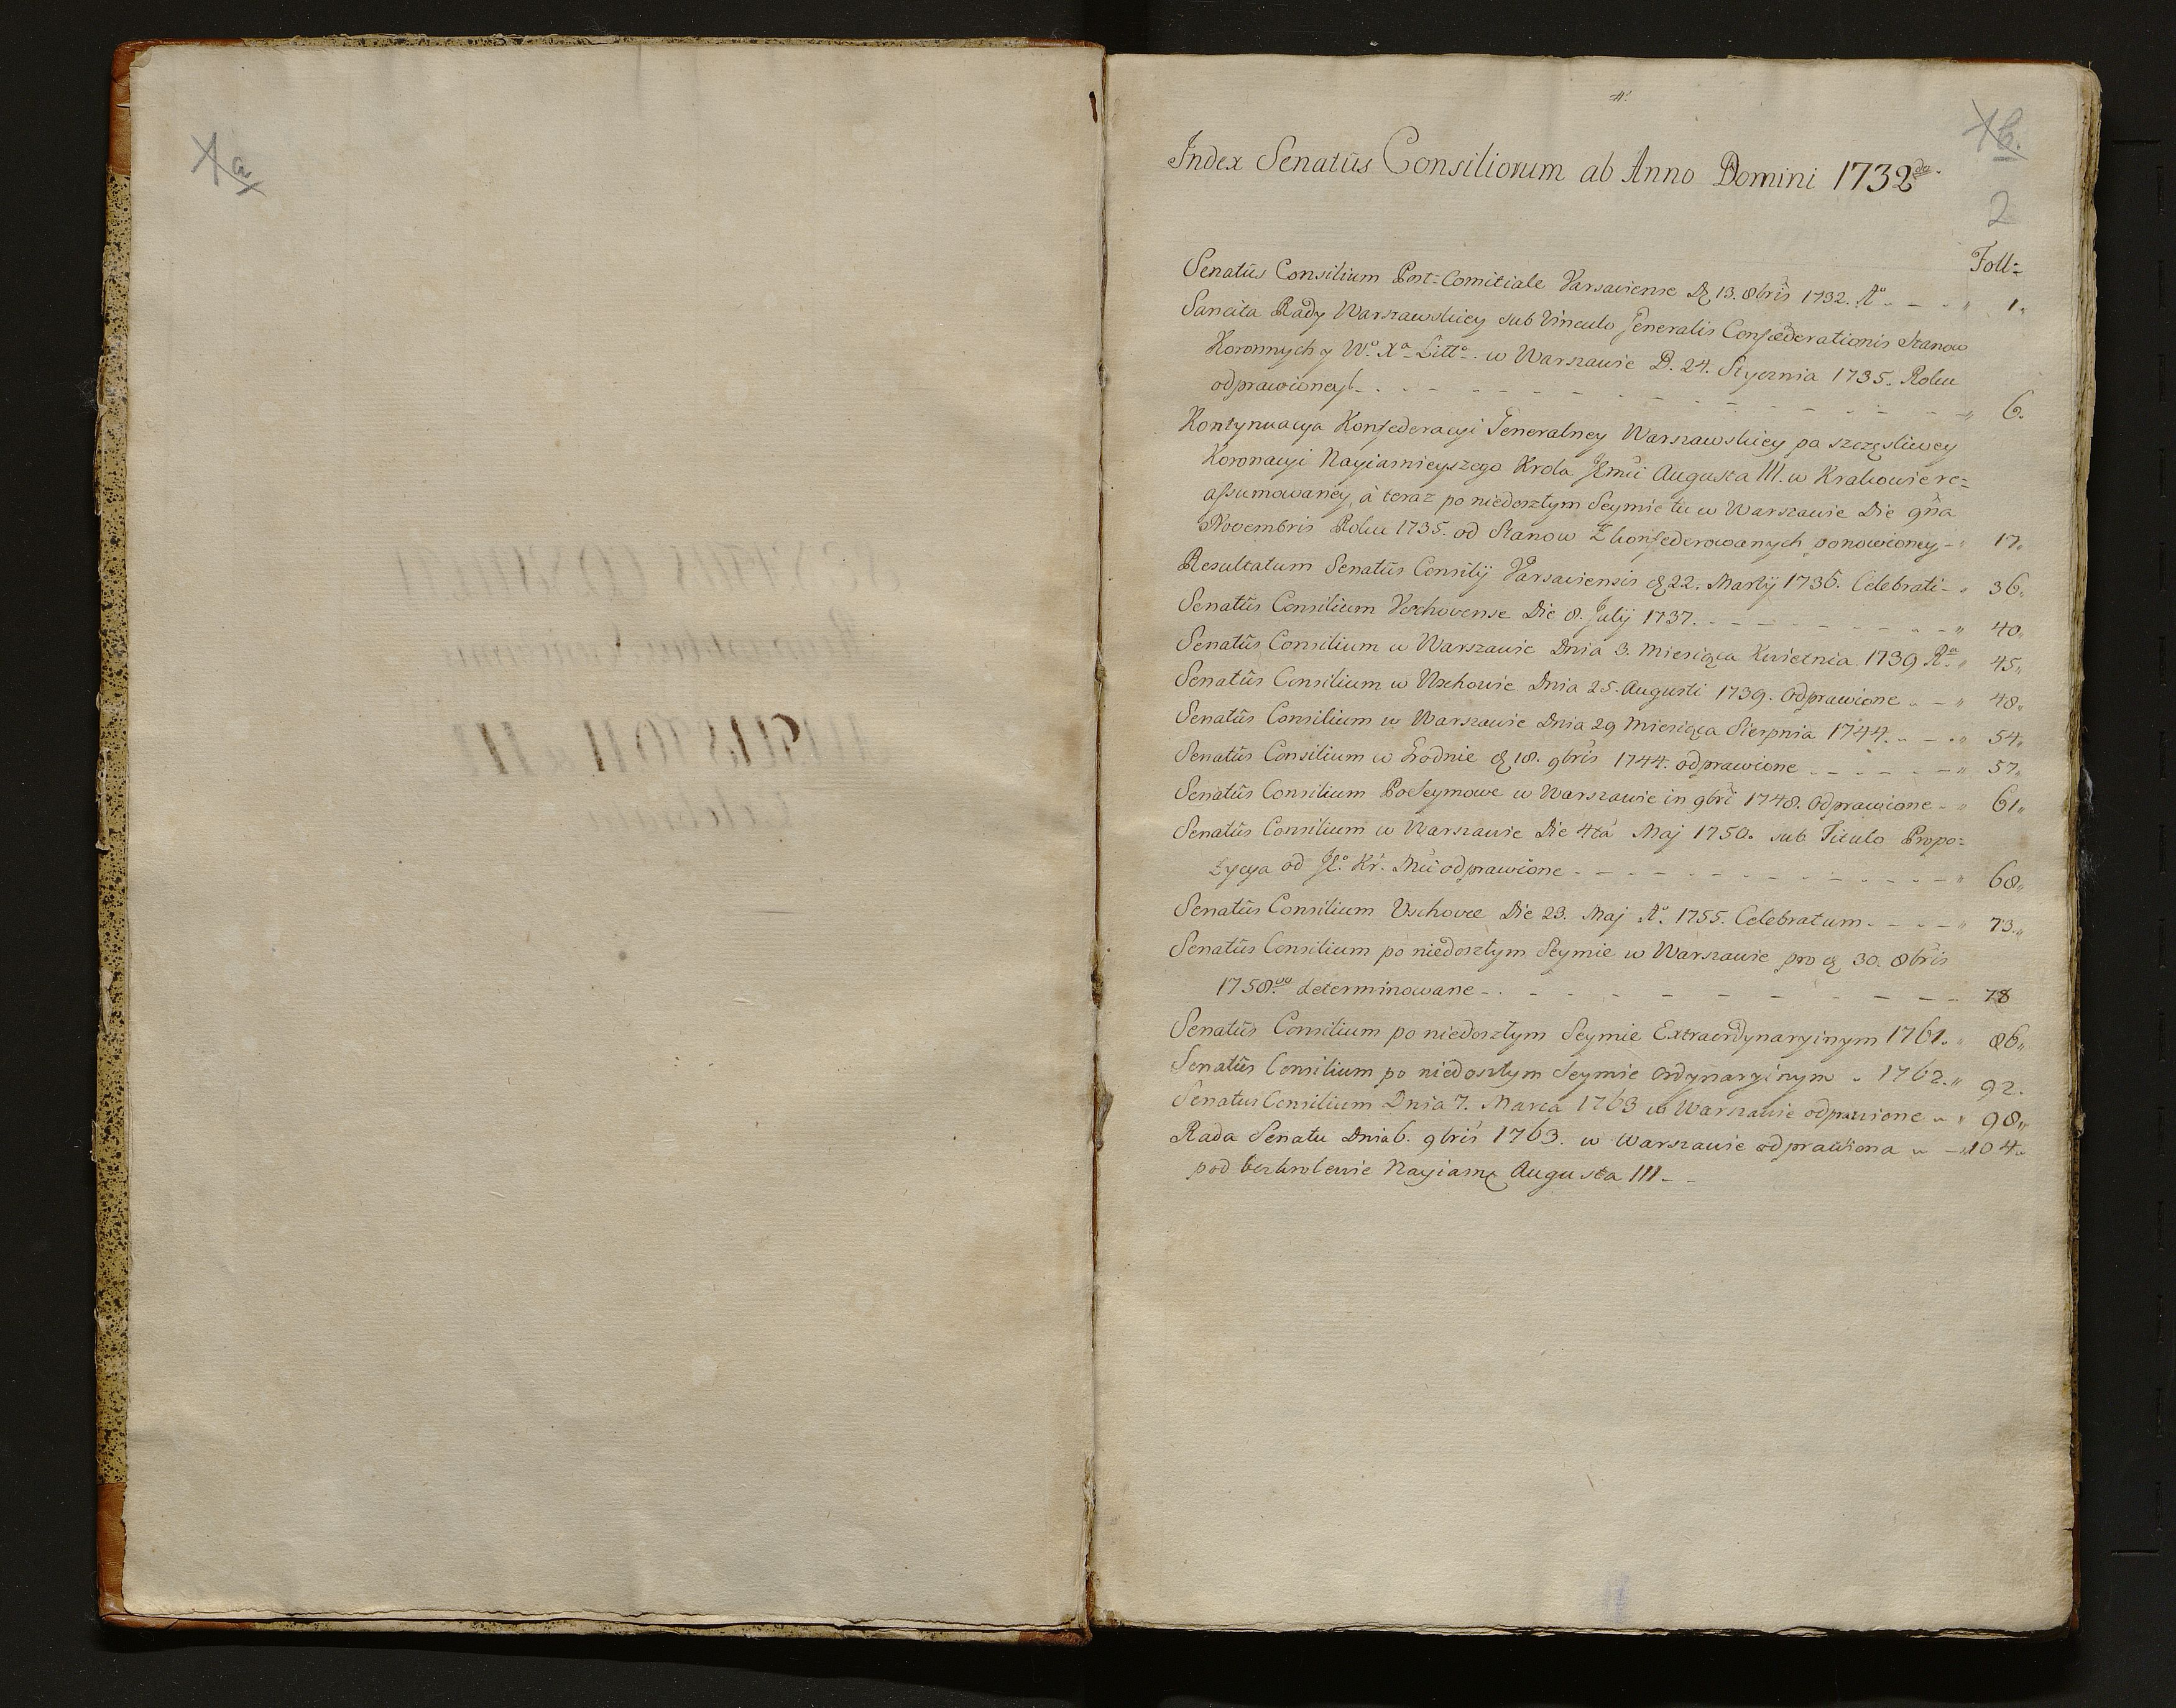 1a
1b.
Index Senatûs Consiliorum ab Anno Domini 1732do.
2
Foll:
Senatûs Consilium Post-Comitiale Varsaviense D. 13. 8bris 1732. Ao. - - - " 1.
Sancita Rady Warszawskiey sub Vinculo Generalis Confæderationis Stanow
Koronnych y Wo. Xa Litto. w Warszawie D. 24. Stycznia 1735. Roku
odprawioney - - - - - - - - - - " 6.
Kontynuacya Konfederacyi Generalney Warszawskiey po szczęśliwey
Koronacyi Nayiasnieyszego Krola Jmći Augusta III. w Krakowie re=
assumowaney, à teraz po niedoszłym Seymie tu w Warszawie Die 9na
Novembris Roku 1735. od Stanow Zkonfederowanych ponowioney - " 17.
Resultatum Senatûs Consilij Varsaviensis D. 22. Martij 1736. Celebrati - " 36.
Senatûs Consilium Vschovense Die 8. Julij 1737. - - - - - - " 40.
Senatûs Consilium w Warszawie Dnia 3. Miesiąca Kwietnia 1739 Ra. " 45.
Senatûs Consilium w Wschowie Dnia 25. Augusti 1739. odprawione " - " 48.
Senatûs Consilium w Warszawie Dnia 29 Miesiąca Sierpnia 1744. - - - " 54.
Senatûs Consilium w Grodnie D. 18. 9bris 1744. odprawione - - - - - " 57.
Senatûs Consilium PoSeymowe w Warszawie in 9bri 1748. odprawione - " 61.
Senatûs Consilium w Warszawie Die 4ta Maj 1750. sub Titulo Propo=
zycya od Jeo. Kr. Mći odprawione - - - - - - - - - " 68.
Senatûs Consilium Vschovæ Die 23. Maj Ao. 1755. Celebratum - - - - " 73.
Senatûs Consilium po niedoszłym Seymie w Warszawie pro D. 30. 8bris
1758vo determinowane - - - - - - - - - 78
Senatûs Consilium po niedoszłym Seymie Extraordynaryinym 1761. " 86.
Senatûs Consilium po niedoszłym Seymie ordynaryinym " 1762. " 92.
Senatus Consilium Dnia 7. Marca 1763 w Warszawie odprawione " " 98.
Rada Senatu Dnia 6. 9bris 1763. w Warszawie odprawiona " - " 104.
pod bezkrolewie Nayiasn. Augusta III - -